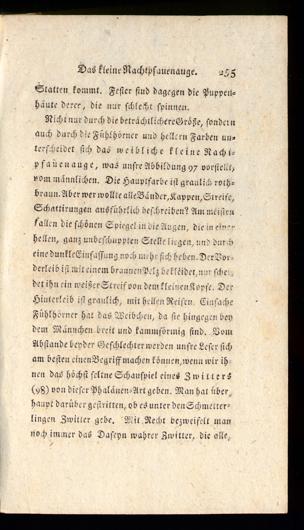 Das kleine Nachtpfauenauge. 255
Statten kommt. Fester sind dagegen die Puppen-
häute derer, die nur schlecht spinnen.
Nicht nur durch die beträchtlichere Größe, sondern
auch durch die Fühlhörner und hellern Farben un-
terscheidet sich das weibliche kleine Nacht-
pfauenauge, was unsre Abbildung 97 vorstellt,
vom männlichen. Die Hauptfarbe ist graulich roth-
braun. Aber wer wollte alle Bänder, Kappen, Streife,
Schattirungen ausführlich beschreiben? Am meisten
fallen die schönen Spiegel in die Augen, die in einer
hellen, ganz unbeschuppten Stelle liegen, und durch
eine dunkle Einfassung noch mehr sich heben. Der Vor-
derleib ist mit einem braunen Pelz bekleidet, nur schei-
det ihn ein weißer Streif von dem kleinen Kopfe. Der
Hinterleib ist graulich, mit hellen Reifen. Einfache
Fühlhörner hat das Weibchen, da sie hingegen bey
dem Männchen breit und kammförmig sind. Vom
Abstande beyder Geschlechter werden unsre Leser sich
am besten einen Begriff machen können, wenn wir ih-
nen das höchst seltne Schauspiel eines Zwitters
(98) von dieser Phalänen-Art geben. Man hat über-
haupt darüber gestritten, ob es unter den Schmetter-
lingen Zwitter gebe. Mit Recht bezweifelt man
noch immer das Daseyn wahrer Zwitter, die alle,